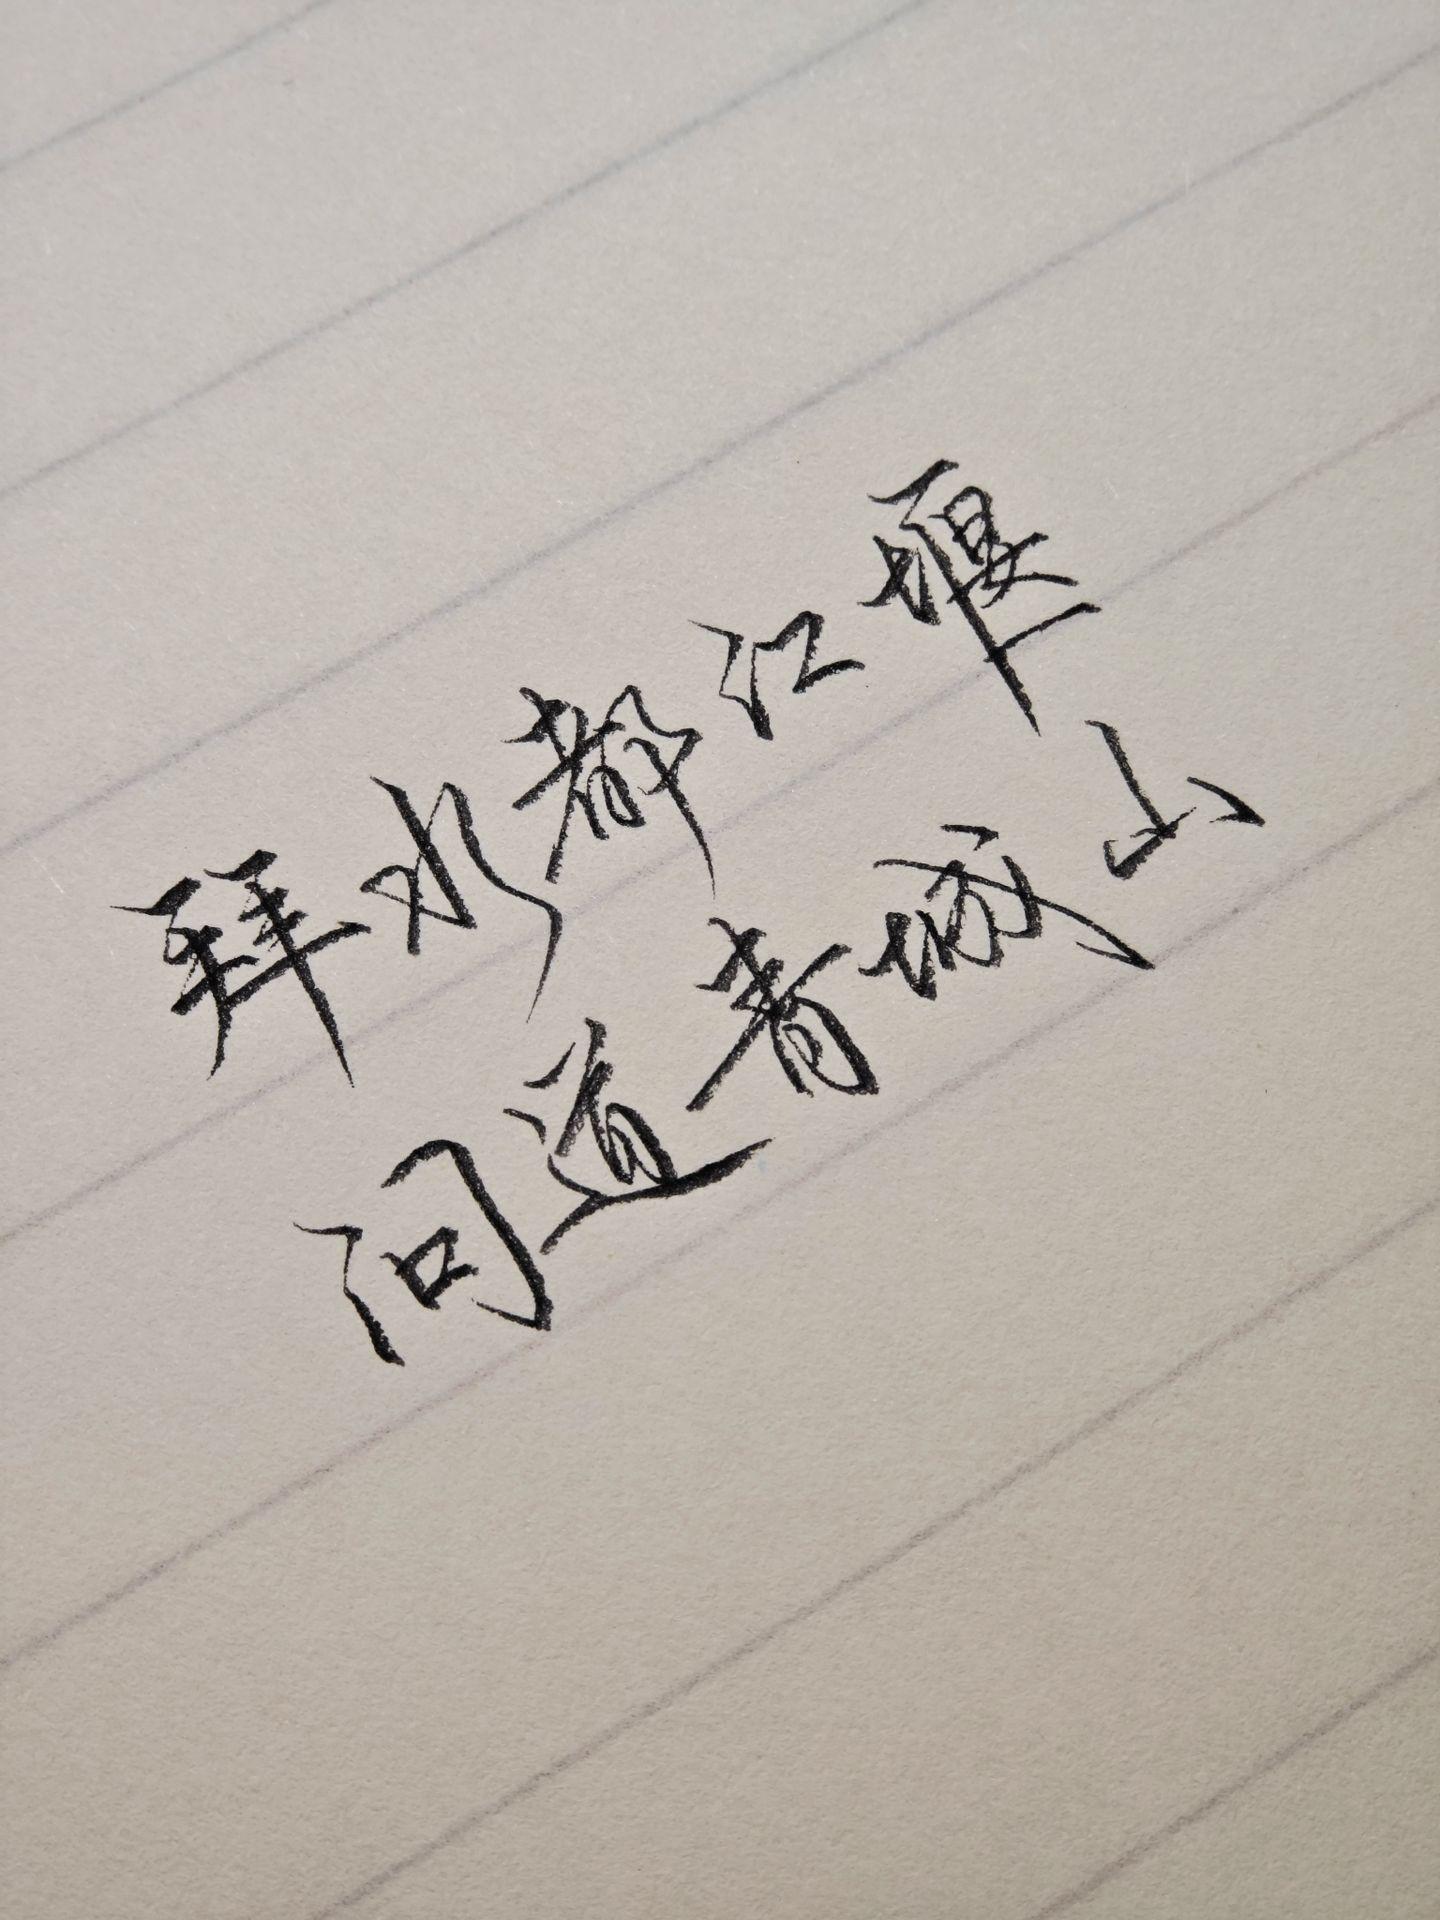 拜水都江堰
问道青城山